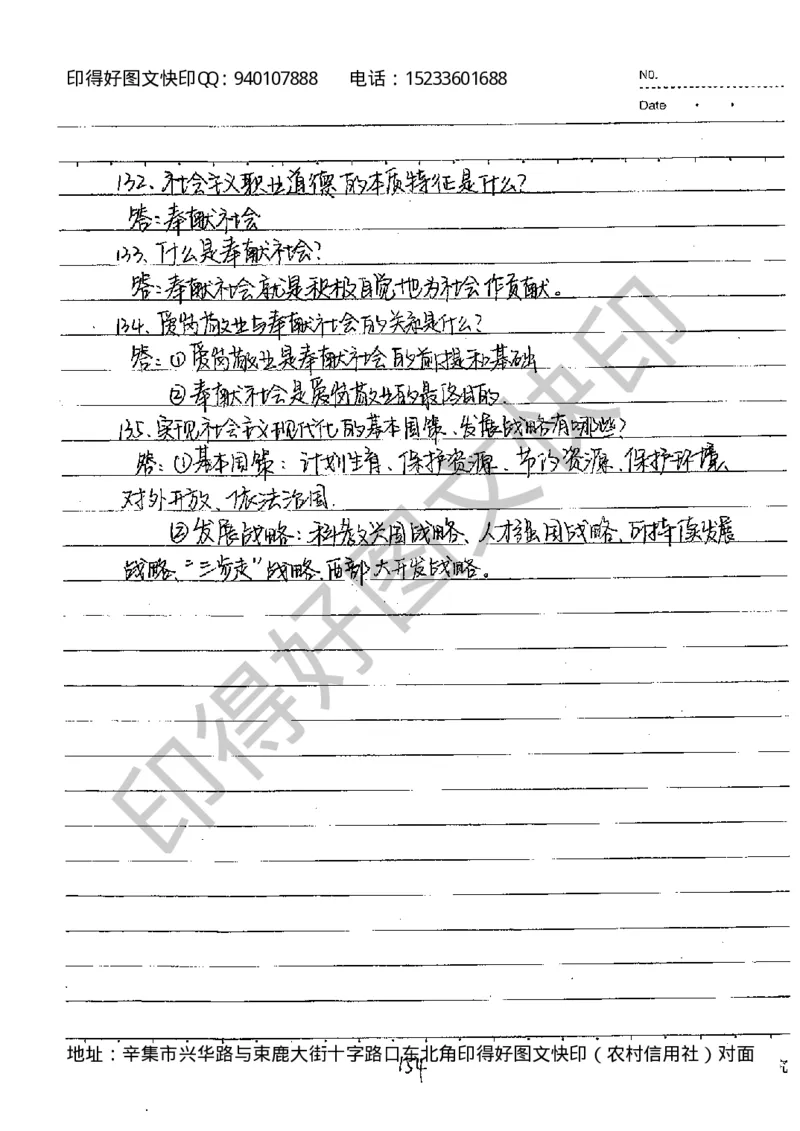 印得好图文快印QQ：940107888 电话：15233601688
NO.
Date
132、社会主义职业道德的本质特征是什么？
答：奉献社会
133、什么是奉献社会？
答：奉献社会就是积极自觉地为社会作贡献。
134、爱岗敬业与奉献社会的关系是什么？
答：①爱岗敬业是奉献社会的前提和基础
②奉献社会是爱岗敬业的最终目的.
135、实现社会主义现代化的基本国策、发展战略有哪些？
答：①基本国策：计划生育、保护资源、节约资源、保护环境、
对外开放、依法治国.
②发展战略：科教兴国战略、人才强国战略、可持续发展
战略、“三步走”战略、西部大开发战略。
印得好图文快印
地址：辛集市兴华路与束鹿大街十字路口东北角印得好图文快印（农村信用社）对面
134